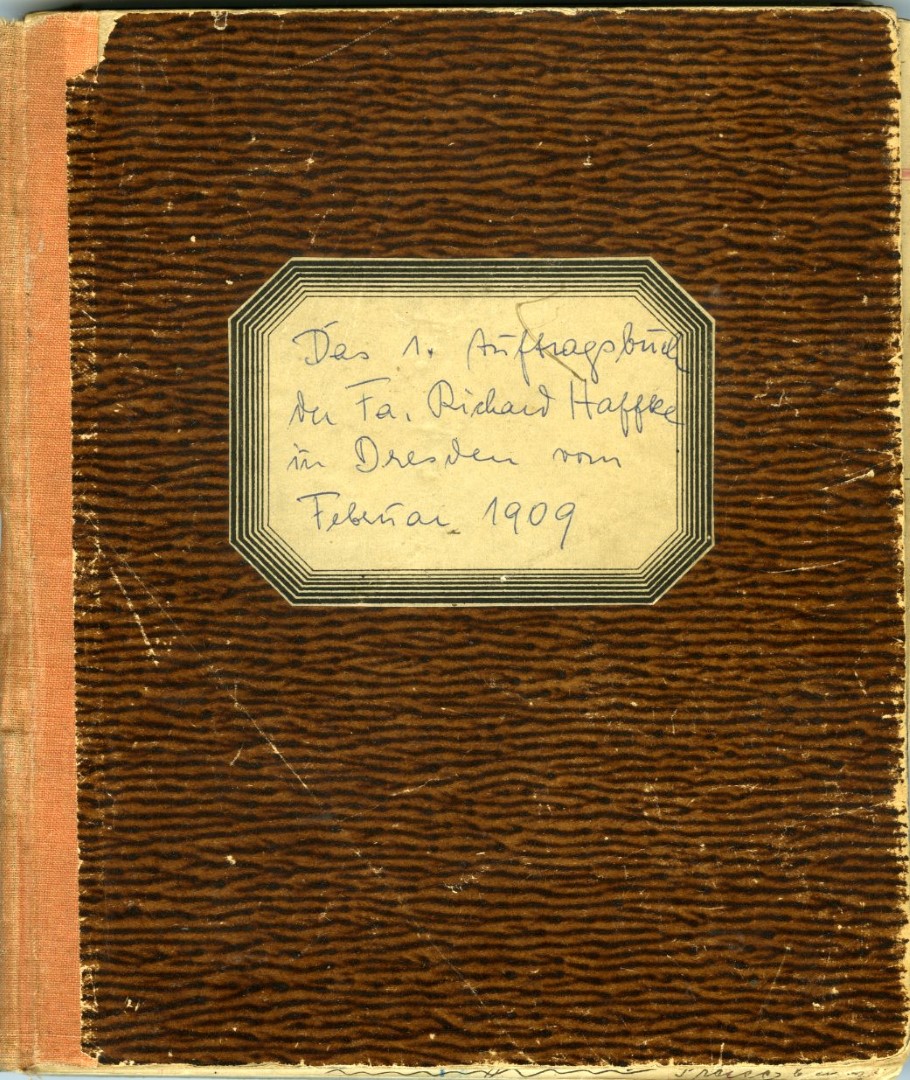 Das 1. Auftragsbuch
der Fa. Richard Haffke
in Dresden vom
Februar 1909